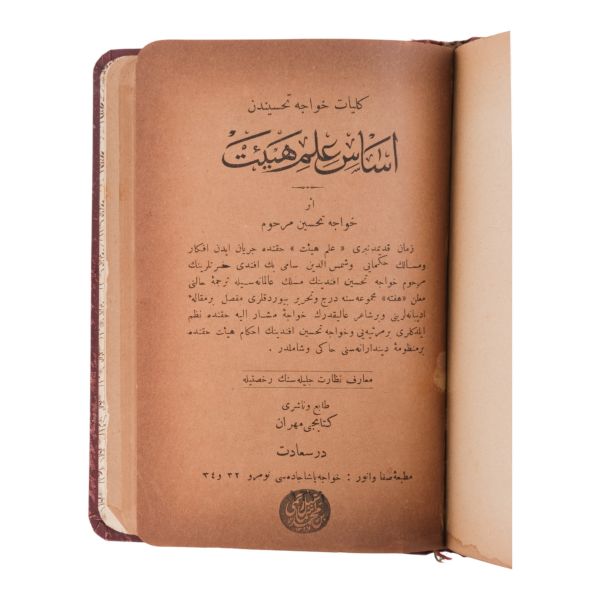 كليات خواجه تحسيندن
اساس علم هيئت
از
خواجه تحسين مرحوم
زمان قديمدنبرى « علم هيئت » حقنده جريان ايدن افكار
ومسالك حكمايى وشمس الدين سامى بك افندى حضرتلرينك
مرحوم خواجه تحسين افندينك مسلك عالمانه‌سيله ترجمهٔ حالنى
معلن «هفته» مجموعه‌سنه درج وتحرير بيوردقلرى مفصل برمقالهٔ
اديبانه‌لرينى وبرشاعر عاليقدرك خواجهٔ مشار اليه حقنده نظم
ايلدكلرى برمرثيه‌يى وخواجه تحسين افندينك احكام هيئت حقنده
برمنظومهٔ ديندارانه‌سنى حاكى وشاملدر .
معارف نظارت جليله‌سنك رخصتيله
طابع وناشرى
كتابجى مهران
درسعادت
مطبعهٔ صفا وانور : خواجه پاشا جاده‌سى نومرو ٣٢ و ٣٤